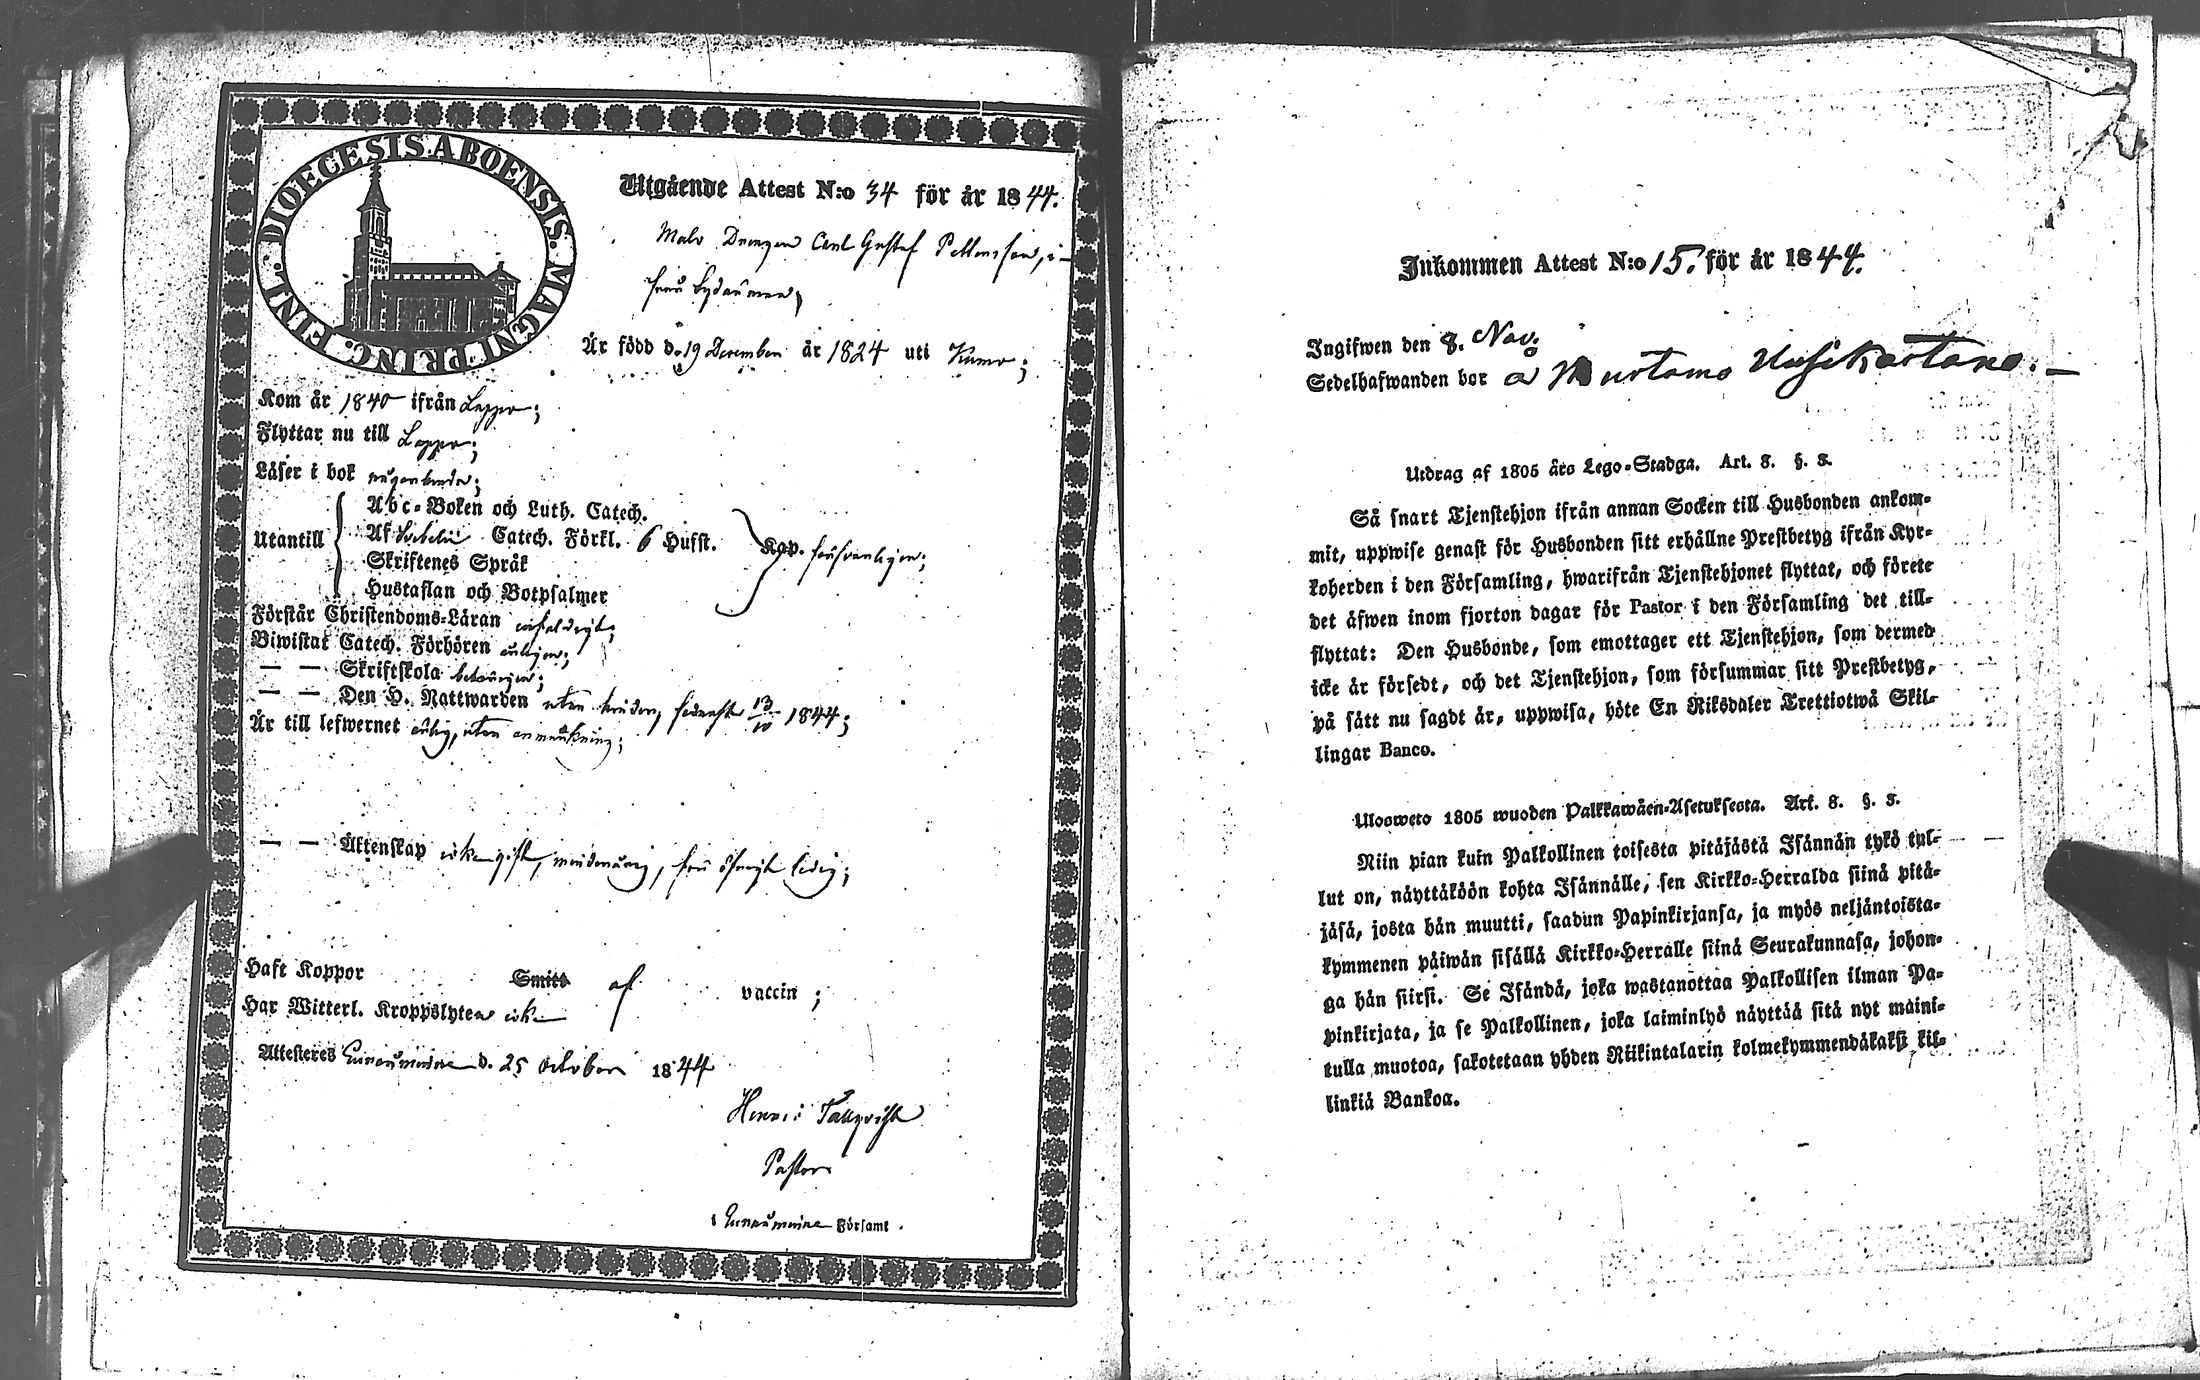 DIOECESIS ABOENSIS. MAGNI PRINC. FINL.
Utgående Attest N:o 34 för år 1844.
Carl Gustaf
Är född d. 19 December år 1824 uti Kumo;
Kom år 1840 ifrån Lappo;
Flyttar nu till Lappo;
Läser i bok
Utantill
Abc-Boken och Luth. Catech.
Af Catech. Förkl. 6 Hufst.
Skriftenes Språk
Hustaflan och Botpsalmer
Kap. försvarligen;
Förstår Christendoms-Läran
Biwistat Catech. Förhören
— — Skriftskola
— — Den H. Nattwarden utan hinder, sednast 13/10 1844;
Är till lefwernet ärlig, utan anmärkning;
— — Äktenskap icke gift, minderårig, för öfrigt ledig;
Haft Koppor Smitt af vaccin;
Har Witterl. Kroppslyten icke
Attesteres d. 25 October 1844
Henric Tallqvist
Pastor
i Församl.
Inkommen Attest N:o 15. för år 1844.
Ingifwen den 8. Nov.
Sedelhafwanden bor Uusikartano.
Utdrag af 1805 års Lego-Stadga. Art. 8. §. 3.
Så snart Tjenstehjon ifrån annan Socken till Husbonden ankom-
mit, uppwise genast för Husbonden sitt erhållne Prestbetyg ifrån Kyr-
koherden i den Församling, hwarifrån Tjenstehjonet flyttat, och förete
det äfwen inom fjorton dagar för Pastor i den Församling det till-
flyttat: Den Husbonde, som emottager ett Tjenstehjon, som dermed
icke är försedt, och det Tjenstehjon, som försummar sitt Prestbetyg,
på sätt nu sagdt är, uppwisa, böte En Riksdaler Trettiotwå Skil-
lingar Banco.
Ulosweto 1805 wuoden Palkkawäen-Asetuksesta. Art. 8. §. 3.
Niin pian kuin Palkollinen toisesta pitäjästä Isännän tykö tul-
lut on, näyttäköön kohta Isännälle, sen Kirkko-Herralda siinä pitä-
jäsä, josta hän muutti, saadun Papinkirjansa, ja myös neljäntoista-
kymmenen päiwän sisällä Kirkko-Herralle siinä Seurakunnasa, johon-
ga hän siirsi. Se Isändä, joka wastanottaa Palkollisen ilman Pa-
pinkirjata, ja se Palkollinen, joka laiminlyö näyttää sitä nyt maini-
tulla muotoa, sakotetaan yhden Riikintalarin kolmekymmendäkaksi kil-
linkiä Bankoa.